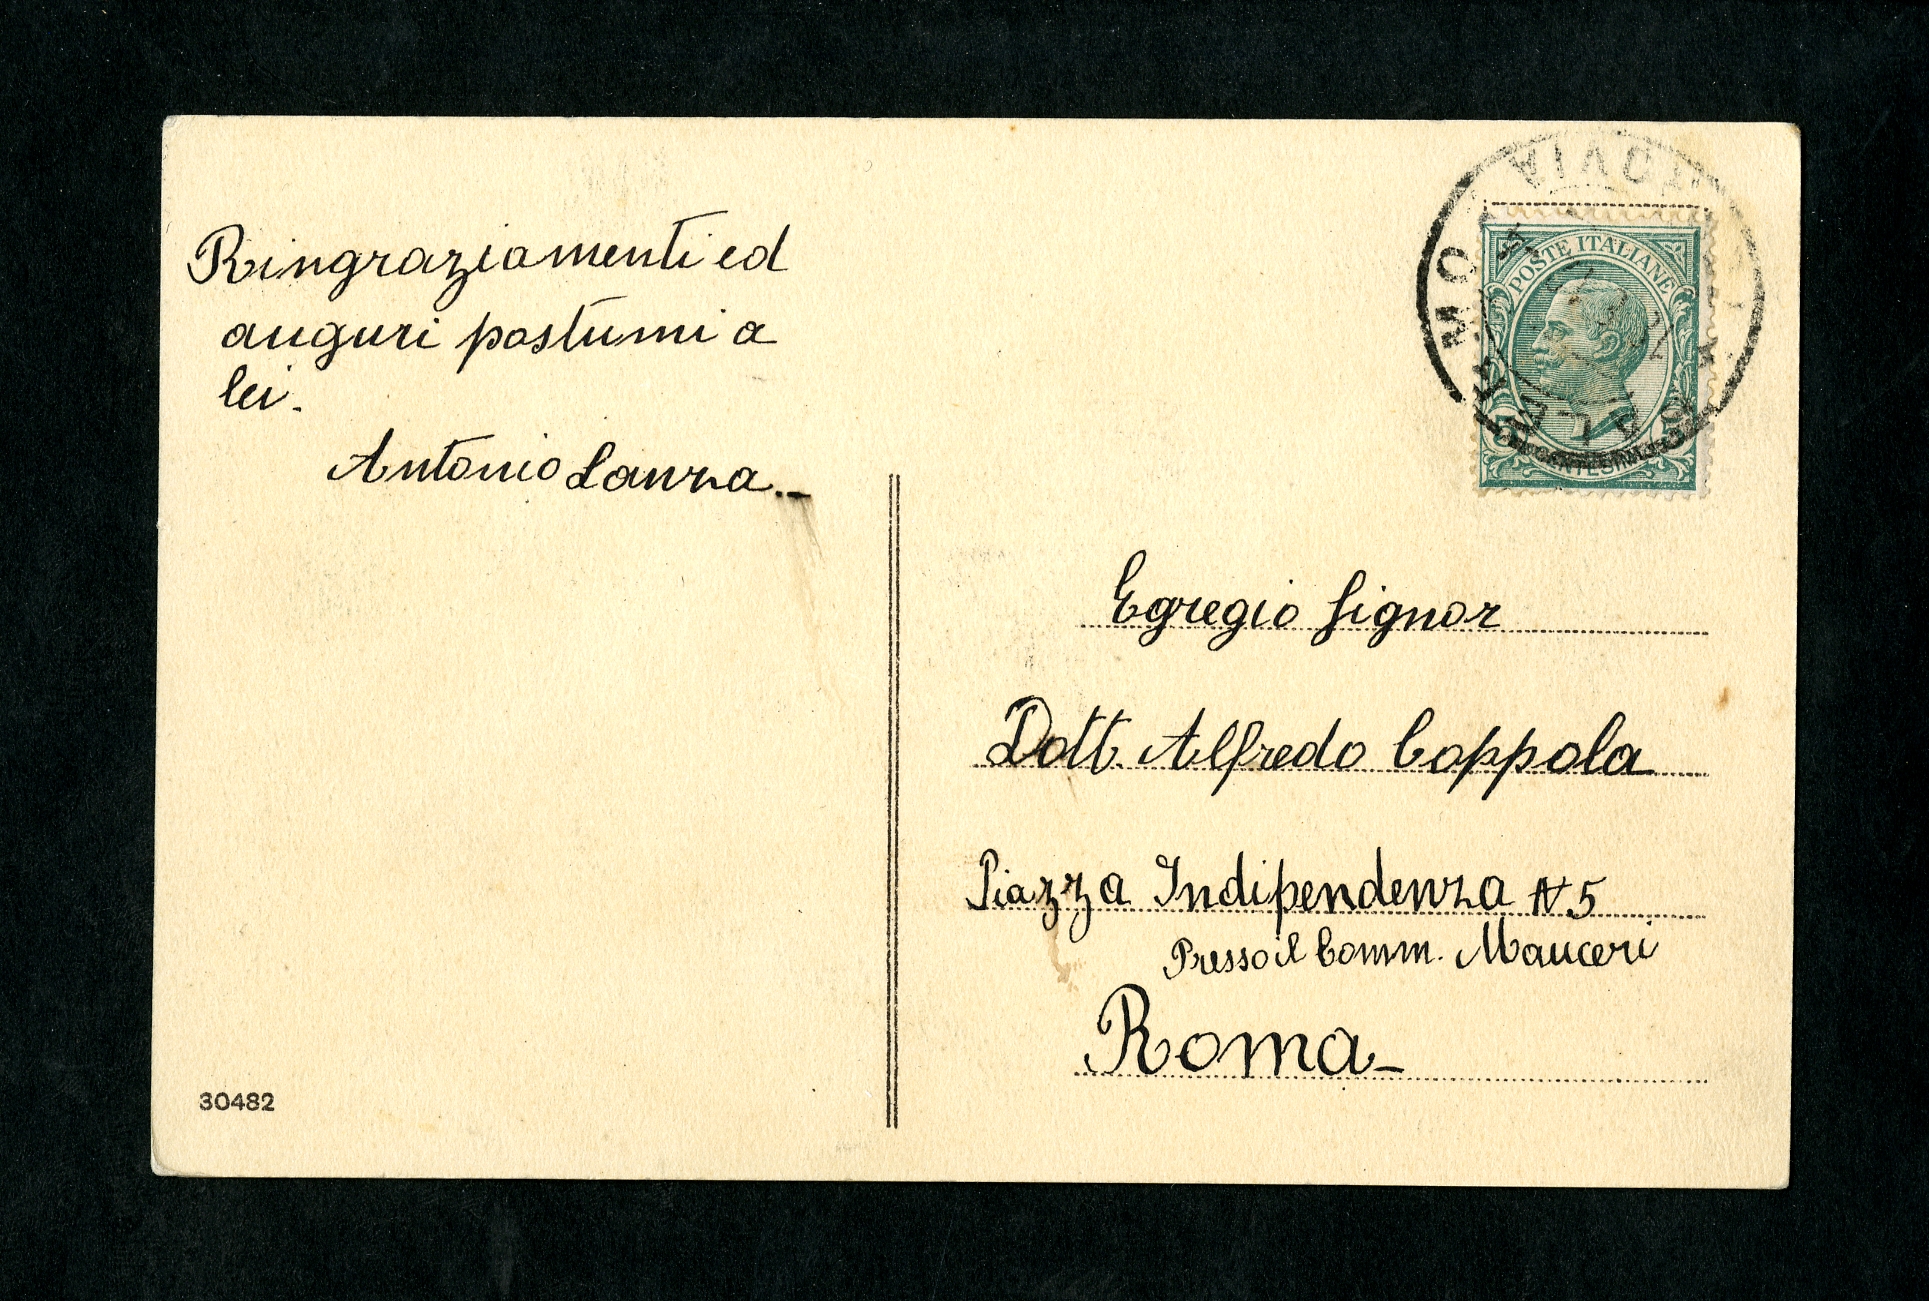 Ringraziamenti ed
auguri postumi a
lei.
Antonio Lanza.
30482
POSTE ITALIANE
Egregio Signor
Dott. Alfredo Coppola
Piazza Indipendenza N 5
Presso il Comm. Mauceri
Roma